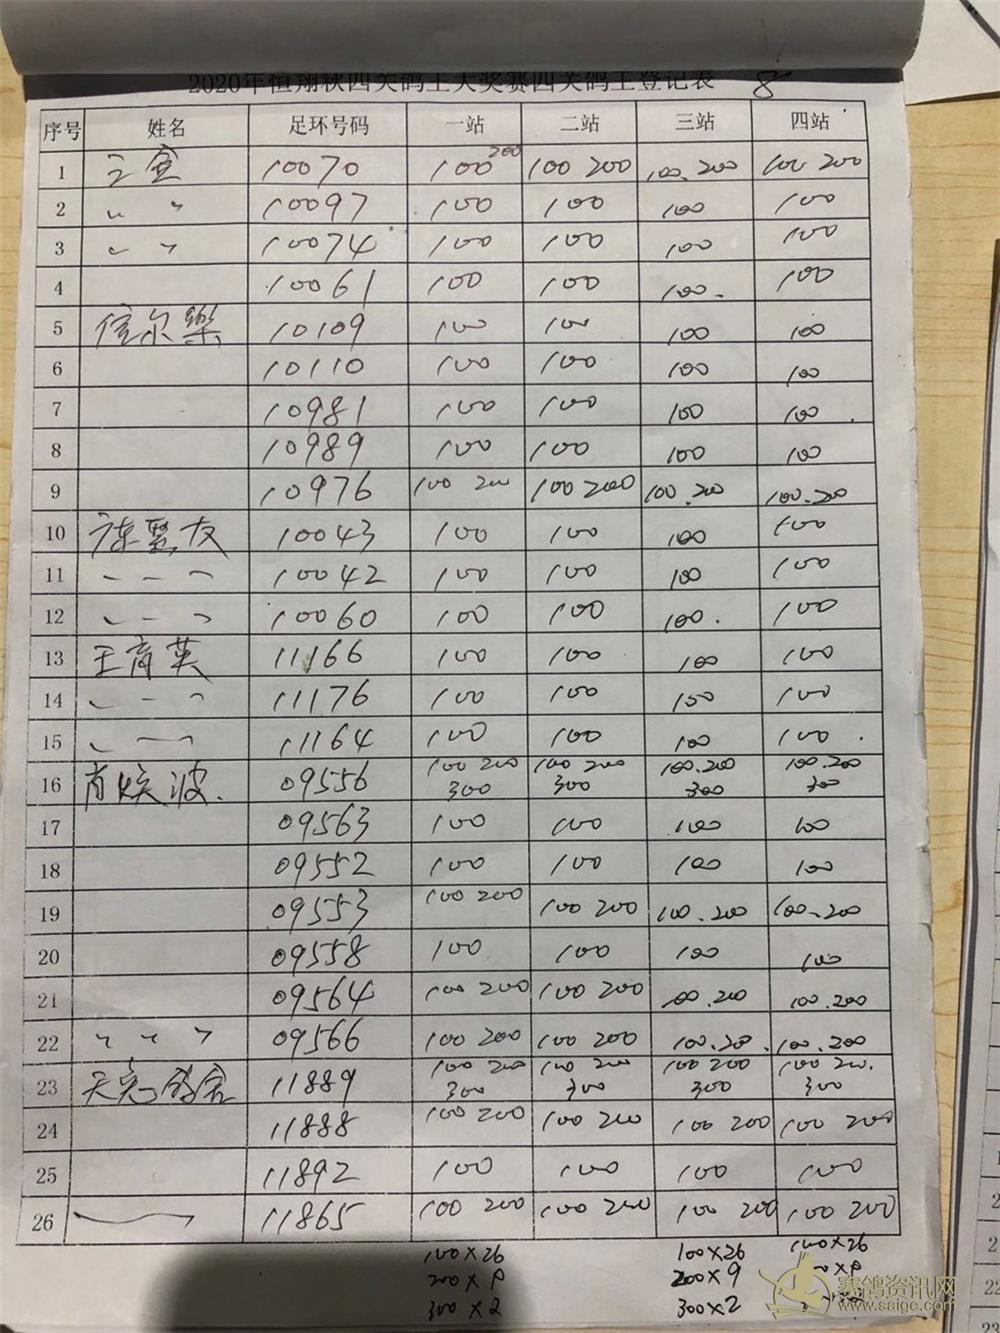 2020年恒翔秋四关鸽王大奖赛四关鸽王登记表 8
序号 姓名 足环号码 一站 二站 三站 四站
1 10070 100 200 100 200 100.200 100 200
2 〃 〃 10097 100 100 100 100
3 〃 〃 10074 100 100 100 100
4 10061 100 100 100. 100
5 信尔樂 10109 100 100 100 100
6 10110 100 100 100 100
7 10981 100 100 100 100
8 10989 100 100 100 100
9 10976 100 200 100 200 100.200 100.200
10 友 10043 100 100 100 100
11 10042 100 100 100 100
12 10060 100 100 100. 100
13 王育英 11166 100 100 100 100
14 11176 100 100 100 100
15 11164 100 100 100 100
16 肖焕波 09556 100 200 300 100 200 300 100.200 300 100.200 300
17 09563 100 100 100 100
18 09552 100 100 100 100
19 09553 100 200 100 200 100.200 100.200
20 09558 100 100 100 100
21 09564 100 200 100 200 100.200 100.200
22 〃 〃 〃 09566 100 200 100 200 100.200 100.200
23 鸽舍 11889 100 200 300 100 200 300 100 200 300 100 200 300
24 11888 100 200 100 200 100 200 100 200
25 11892 100 100 100 100
26 11865 100 200 100 200 100 200 100 200
100×26 100×26 100×26
200×9 200×9
300×2 300×2
赛鸽资讯网
www.saige.com
22
23